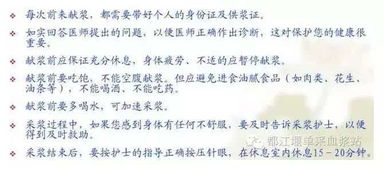 每次前来献浆，都需要带好个人的身份证及供浆证。
如实回答医师提出的问题，以便医师正确作出诊断，这对保护您的健康很
重要。
献浆前应保证充分休息，身体疲劳、不适的应暂停献浆。
献浆前要吃饱，不能空腹献浆。但应避免进食油腻食品（如肉类、花生、
油条等），不能喝酒、不能吃药。
献浆前要多喝水，可加速采浆。
采浆过程中，如果您感到身体有任何不舒服，要及时告诉采浆护士，以便
得到及时救助。
采浆结束后，要按护士的指导正确按压针眼，在休息室内休息15－20分钟。
都江堰单采血浆站